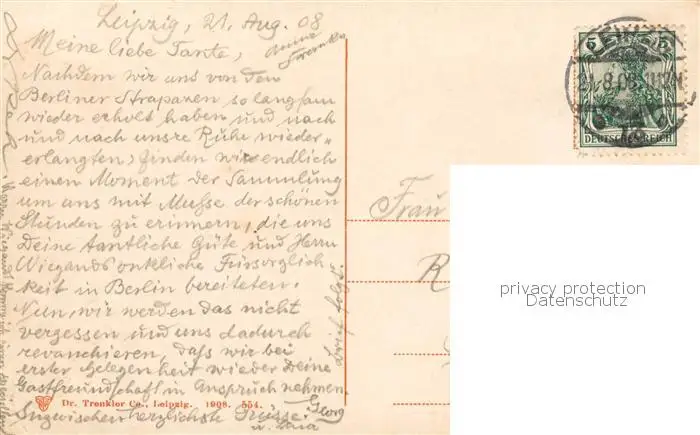 Leipzig, 21. Aug. 08
Meine liebe Tante,
Nachdem wir uns von den
Berliner Strapazen so langsam
wieder erholt haben und nach
und nach unsre Ruhe wieder-
erlangten, finden wir endlich
einen Moment der Sammlung
um uns mit Musse der schönen
Stunden zu erinnern, die uns
Deine tantliche Güte und Herrn
Wiegands onkliche Fürsorglich
keit in Berlin bereiteten.
Nun, wir werden das nicht
vergessen und uns dadurch
revanchieren, dass wir bei
erster Gelegenheit wieder Deine
Gastfreundschaft in Anspruch nehmen.
Inzwischen herzlichste Grüsse
Georg
u.
Brief folgt.
Dr. Trenkler Co., Leipzig. 1908. 554.
5 5
LEIPZIG
21.8.08.
DEUTSCHES REICH
Frau
R
privacy protection
Datenschutz